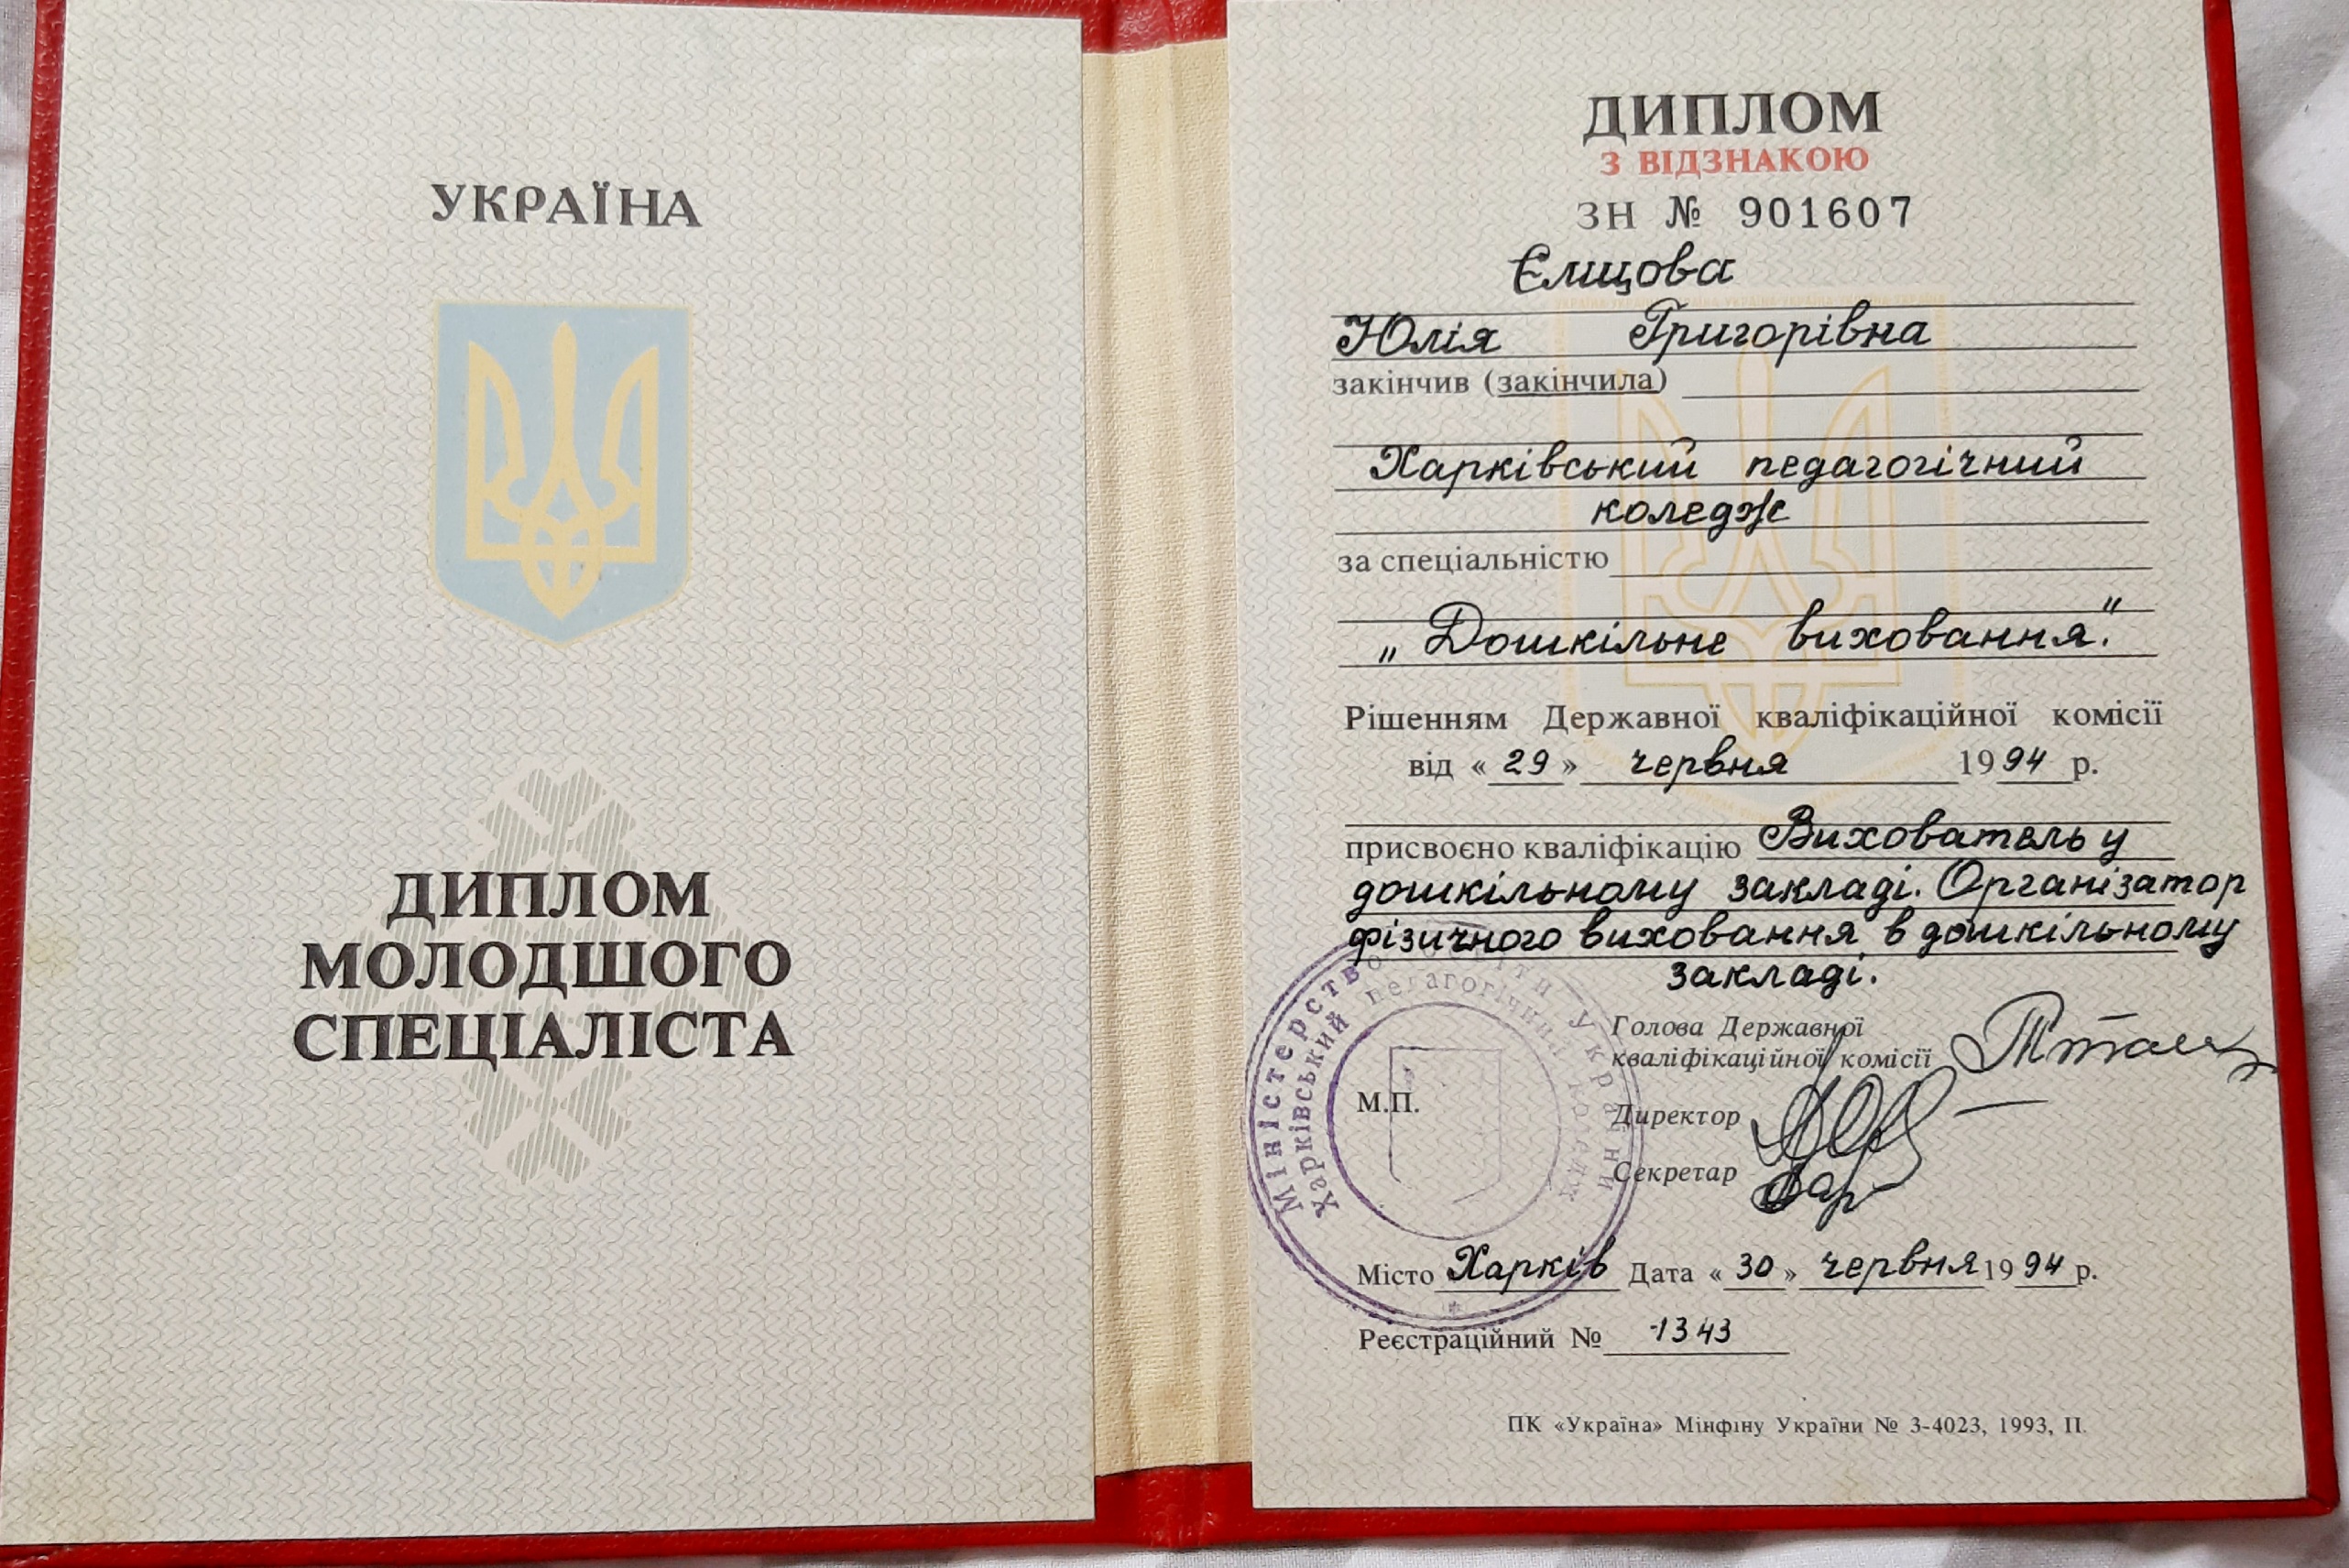 УКРАЇНА
ДИПЛОМ
МОЛОДШОГО
СПЕЦІАЛІСТА
ДИПЛОМ
З ВІДЗНАКОЮ
ЗН № 901607
Ємцова
Юлія Григорівна
закінчив (закінчила)
Харківський педагогічний
коледж
за спеціальністю
„Дошкільне виховання."
Рішенням Державної кваліфікаційної комісії
від « 29 » червня 1994 р.
присвоєно кваліфікацію Вихователь у
дошкільному закладі. Організатор
фізичного виховання в дошкільному
закладі.
Голова Державної
кваліфікаційної комісії
М.П.
Директор
Секретар
Міністерство освіти України
Харківський педагогічний коледж
Місто Харків Дата « 30 » червня 1994 р.
Реєстраційний № 1343
ПК «Україна» Мінфіну України № 3-4023, 1993, II.